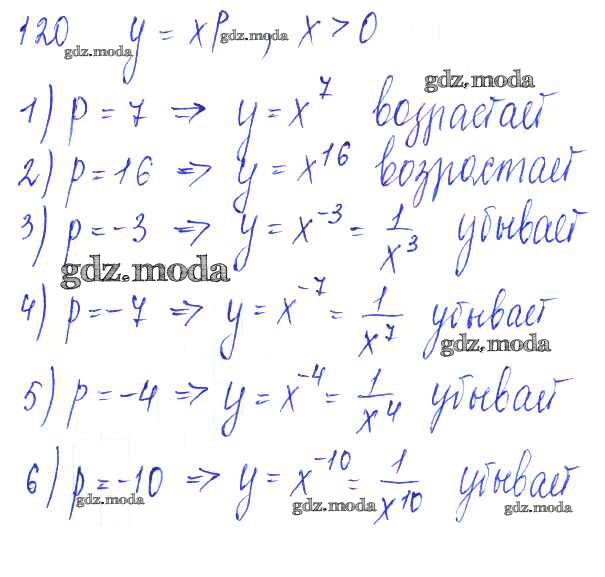 120 y = x^p, x > 0
gdz.moda gdz.moda
gdz.moda
1) p = 7 ⇒ y = x^7 возрастает
2) p = 16 ⇒ y = x^16 возростает
3) p = -3 ⇒ y = x^-3 = 1/x^3 убывает
gdz.moda
4) p = -7 ⇒ y = x^-7 = 1/x^7 убывает
gdz.moda
5) p = -4 ⇒ y = x^-4 = 1/x^4 убывает
6) p = -10 ⇒ y = x^-10 = 1/x^10 убывает
gdz.moda gdz.moda gdz.moda